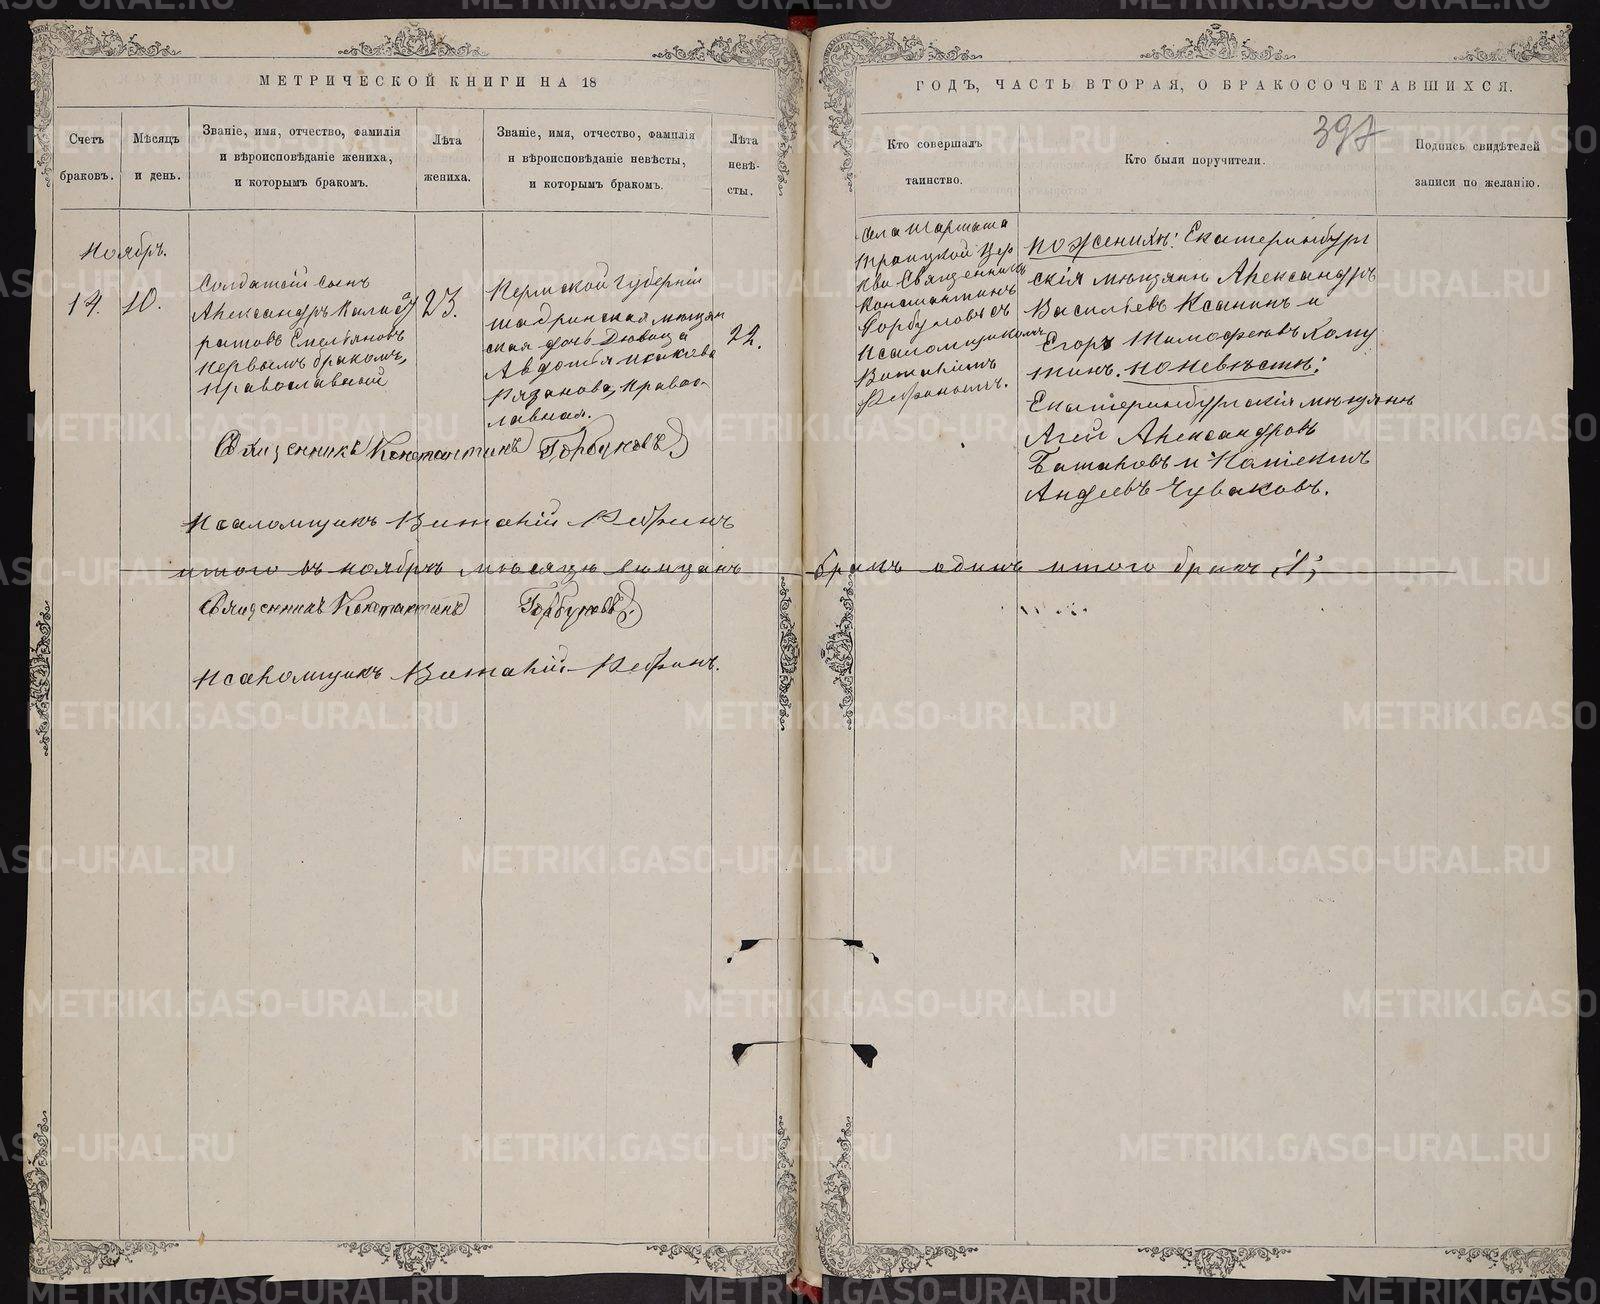 МЕТРИЧЕСКОЙ КНИГИ НА 18
Счетъ браковъ.
Мѣсяцъ и день.
Званіе, имя, отчество, фамилія
и вѣроисповѣданіе жениха,
и которымъ бракомъ.
Лѣта жениха.
Званіе, имя, отчество, фамилія
и вѣроисповѣданіе невѣсты,
и которымъ бракомъ.
Лѣта невѣ-
сты.
Ноябрь.
14.
10.
Солдатскій сынъ
Александръ
Емельяновъ
первымъ бракомъ,
православный
23.
Пермской губерніи
шадринская мѣщан
ская дочь Дѣвица
Авдотья Исакова
Рязанова, правос-
лавная.
22.
Священникъ Константинъ Горбуновъ
Псаломщикъ Виталій Ребринъ
итого въ ноябрѣ мѣсяцѣ вѣнчанъ
Священникъ Константинъ Горбуновъ
Псаломщикъ Виталій Ребринъ.
ГОДЪ, ЧАСТЬ ВТОРАЯ, О БРАКОСОЧЕТАВШИХСЯ.
397
Кто совершалъ
таинство.
Кто были поручители.
Подпись свидѣтелей
записи по желанію.
Села Шарташа
Троицкой Цер
кви Священникъ
Константинъ
Горбуновъ съ
Псаломщикомъ
Виталіемъ
Ребринымъ.
по женихѣ: Екатеринбург
скія мѣщане Александръ
Васильевъ Ксанинъ и
Егоръ Тимофеевъ Копу
тинъ. по невѣстѣ:
Екатеринбургскія мѣщане
Агей Александровъ
Баталовъ и
Андреевъ Чуваковъ.
бракъ одинъ итого бракъ „1„
METRIKI.GASO-URAL.RU